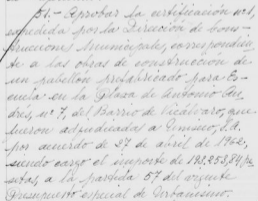 51.- Aprobar la certificación nº 1,
expedida por la Dirección de Cons-
trucciones Municipales, correspondien-
te a las obras de construcción de
un pabellón prefabricado para Es-
cuela en la Plaza de Antonio An-
drés, nº 7, del Barrio de Vicálvaro, que
fueron adjudicadas a S.A.
por acuerdo de 27 de abril de 1962,
siendo cargo el importe de 198.258,84 pe-
setas, a la partida 57 del vigente
Presupuesto especial de Urbanismo.